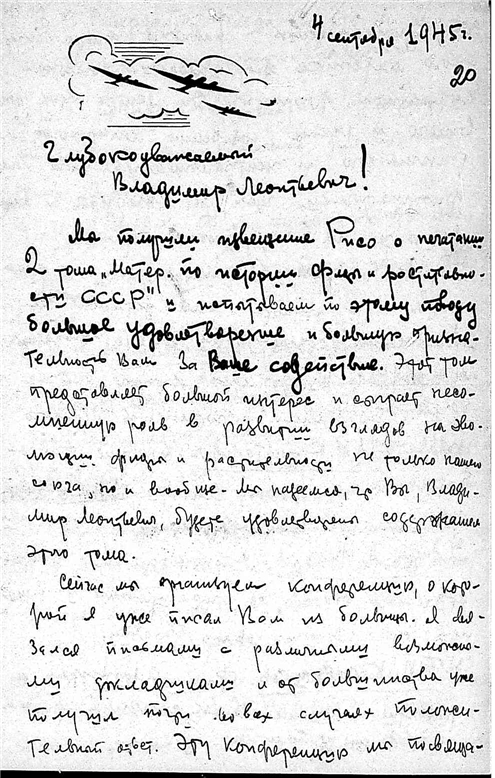 4 сентября 1945г.
20
Глубокоуважаемый
Владимир Леонтьевич!
Мы получили извещение Рисо о печатании
2 тома „Матер. по истории флоры и раститель-
сти СССР" и испытываем по этому поводу
большое удовлетворение и большую призна-
тельность Вам за Ваше содействие. Этот том
представляет большой интерес и сыграет несо-
мненную роль в развитии взглядов на эво-
люцию флоры и растительности не только нашего
союза, но и вообще. Мы надеемся, что Вы, Влади-
мир Леонтьевич, будете удовлетворены содержанием
этого тома.
Сейчас мы организуем конференцию, о кото-
рой я уже писал Вам из больницы. Я свя-
зался письмами с различными возможны-
ми докладчиками и от большинства уже
получил почти во всех случаях положи-
тельный ответ. Эту конференцию мы посвяща-